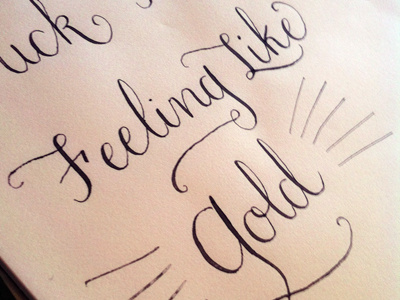 uck
Feeling Like
gold